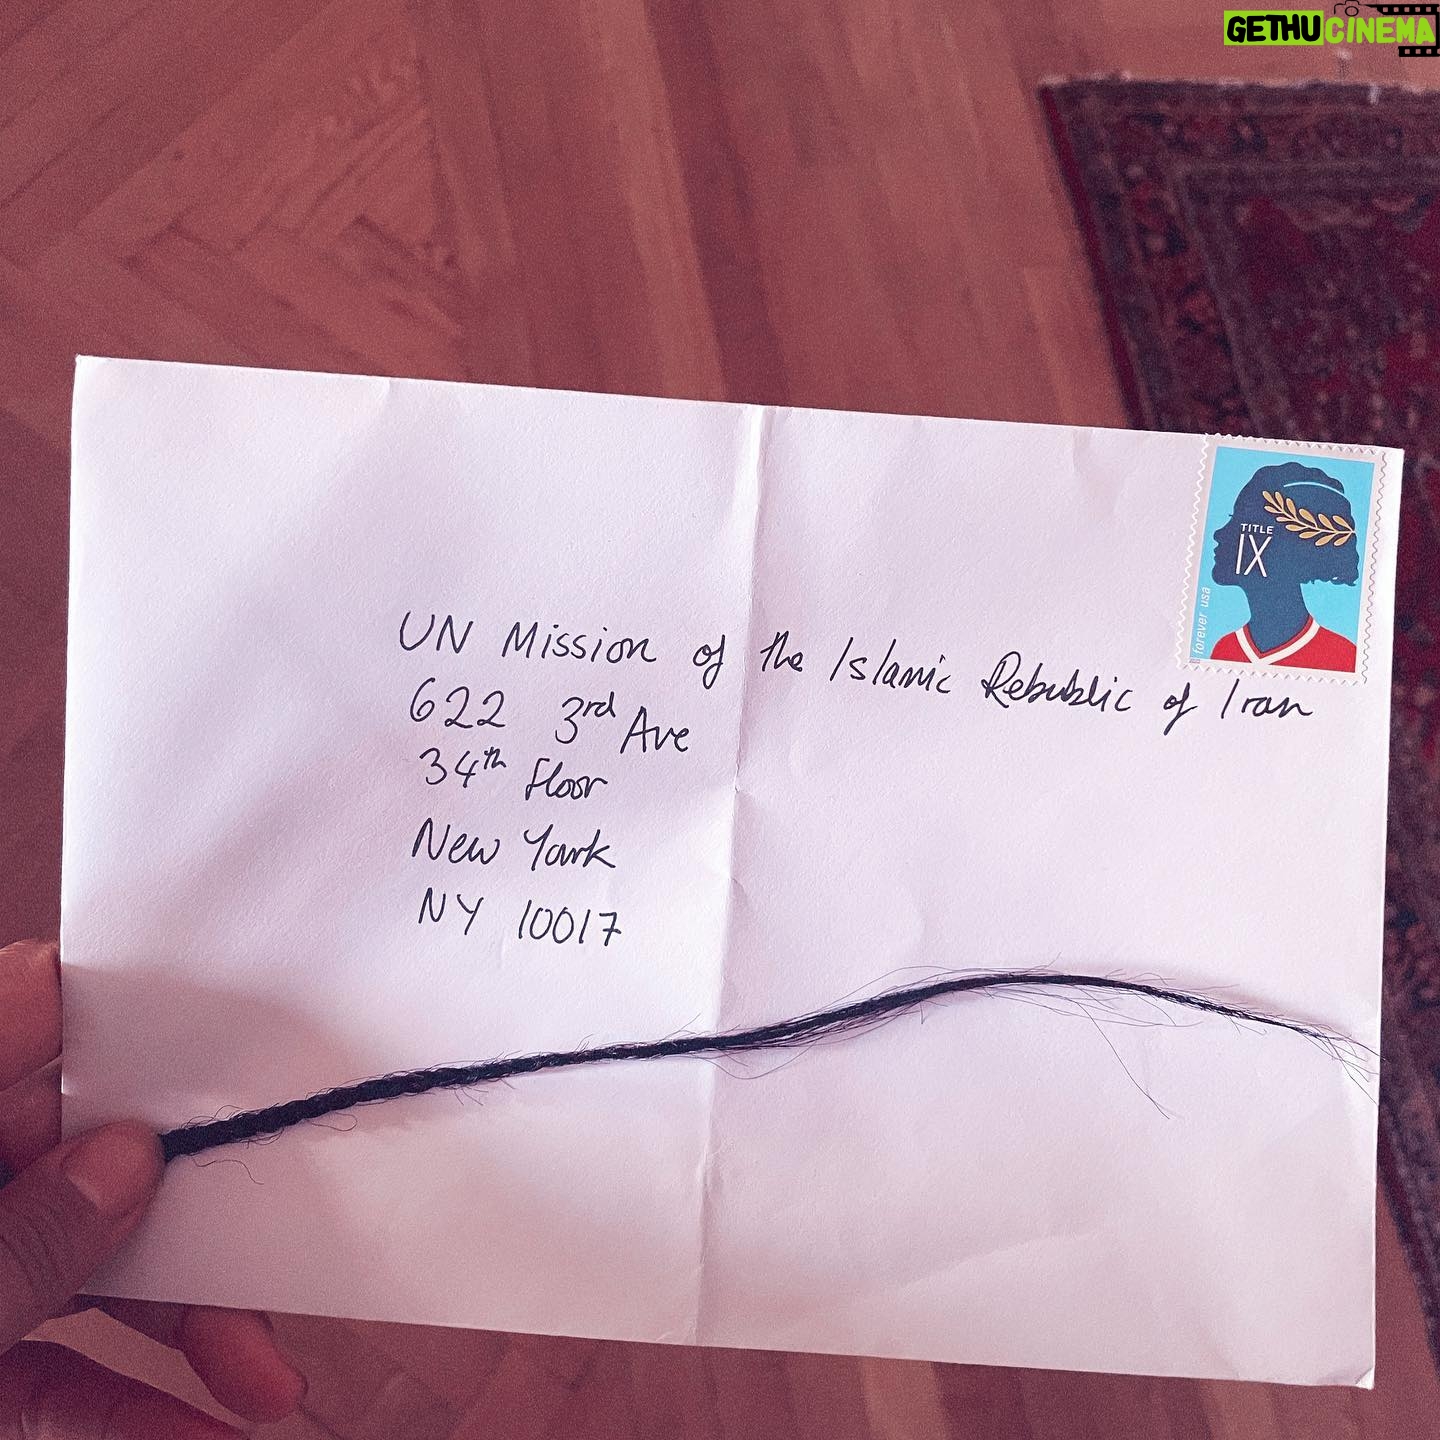 GETHUCINEMA
TITLE
IX
forever usa
UN Mission of the Islamic Republic of Iran
622 3rd Ave
34th Floor
New York
NY 10017